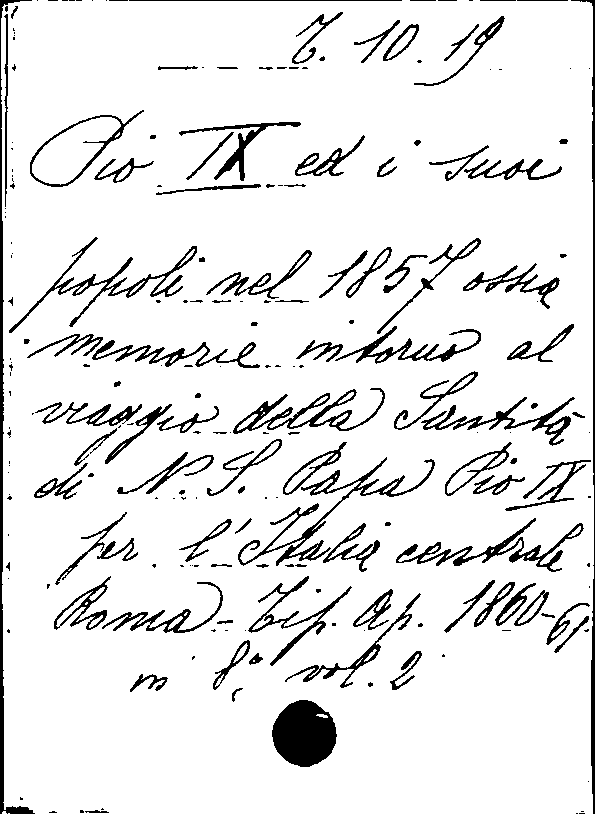 7. 10. 19
Pio IX ed i suoi
popoli nel 1857 ossia
memorie intorno al
viaggio della Santità
di N. S. Papa Pio IX
per l'Italia centrale
Roma - Tip. Ap. 1860-61
in 8°, vol. 2